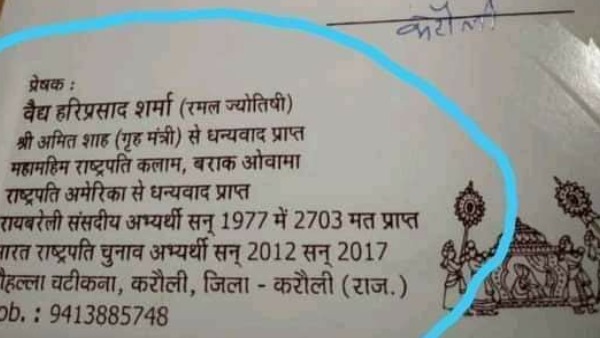 करौली
प्रेषक :
वैद्य हरिप्रसाद शर्मा (रमल ज्योतिषी)
श्री अमित शाह (गृह मंत्री) से धन्यवाद प्राप्त
महामहिम राष्ट्रपति कलाम, बराक ओवामा
राष्ट्रपति अमेरिका से धन्यवाद प्राप्त
रायबरेली संसदीय अभ्यर्थी सन् 1977 में 2703 मत प्राप्त
भारत राष्ट्रपति चुनाव अभ्यर्थी सन् 2012 सन् 2017
मौहल्ला चटीकना, करौली, जिला - करौली (राज.)
ob. : 9413885748